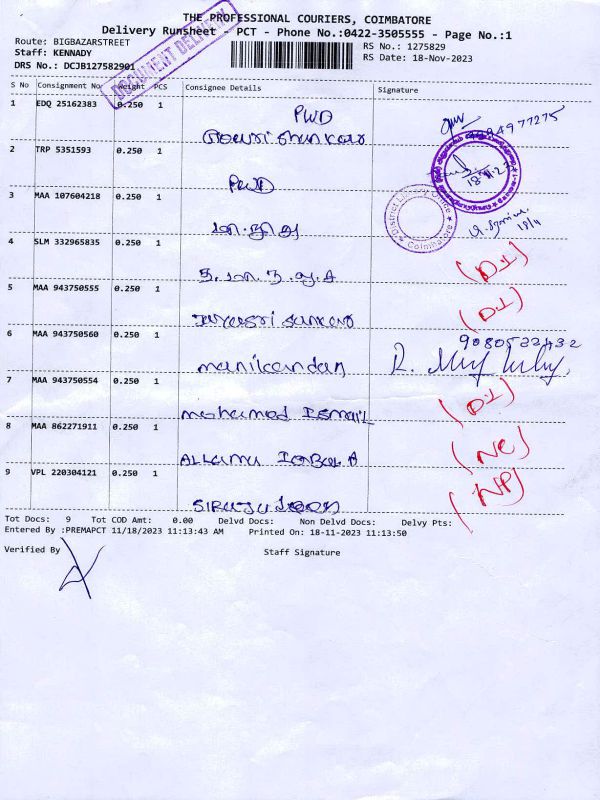 THE PROFESSIONAL COURIERS, COIMBATORE
Delivery Runsheet - PCT - Phone No.:0422-3505555 - Page No.:1
Route: BIGBAZARSTREET
RS No.: 1275829
Staff: KENNADY
RS Date: 18-Nov-2023
DRS No.: DCJB127582901
DOCUMENT DELIVERY
S No Consignment No Weight PCS Consignee Details Signature
1 EDQ 25162383 0.250 1
PWD
2 TRP 5351593 0.250 1
PWD
3 MAA 107604218 0.250 1
District Office Coimbatore
4 SLM 332965835 0.250 1
(D.L)
5 MAA 943750555 0.250 1
(D.L)
6 MAA 943750560 0.250 1
manikandan
7 MAA 943750554 0.250 1
(D.L)
mohamed Ismail
8 MAA 862271911 0.250 1
(NC)
9 VPL 220304121 0.250 1
(NP)
Tot Docs: 9 Tot COD Amt: 0.00 Delvd Docs: Non Delvd Docs: Delvy Pts:
Entered By :PREMAPCT 11/18/2023 11:13:43 AM Printed On: 18-11-2023 11:13:50
Verified By Staff Signature